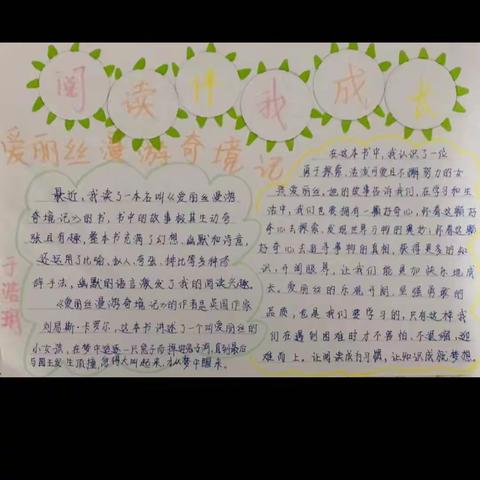 阅读伴我成长
爱丽丝漫游奇境记
于浩玥
最近,我读了一本名叫《爱丽丝漫游
奇境记》的书,书中的故事极其生动夸
张且有趣,整本书充满了幻想,幽默和诗意,
还运用了比喻、拟人、夸张、排比等多种修
辞手法,幽默的语言激发了我的阅读兴趣。
《爱丽丝漫游奇境记》的作者是英国作家
刘易斯·卡罗尔,这本书讲述了一个叫爱丽丝的
小女孩,在梦中追逐一只兔子而掉进兔子洞,直到最后
与国王发生顶撞,急得大叫起来,才从梦中醒来。
在这本书中,我认识了一位
勇于探索,活泼可爱且不懈努力的女
孩爱丽丝,她的故事告诉我们,在学习和生
活中,我们也要拥有一颗好奇心,怀着这颗好
奇心去探索,发现世界万物的奥妙;怀着这颗
好奇心去追寻事物的真相,获得更多的知
识,开阔眼界,让我们能更加快乐地成
长。爱丽丝的乐观开朗,坚强勇敢的
品质,也是我们要学习的,只有这样我
们在遇到困难时才不害怕,不退缩,迎
难而上。让阅读成为习惯,让知识成就梦想。